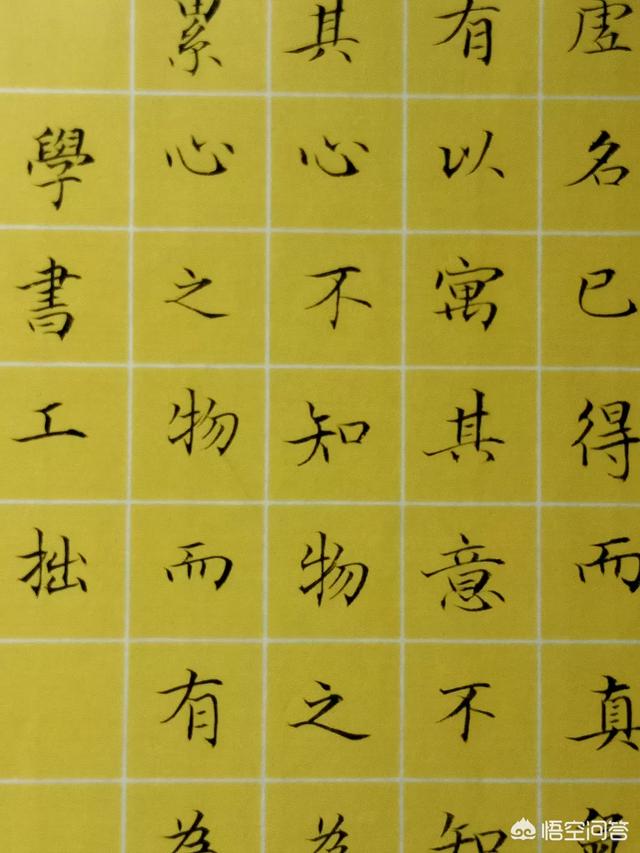 虚名已得而真氣
有以寓其意不知
其心不知物之為
累心之物而有為
學書工拙
悟空问答